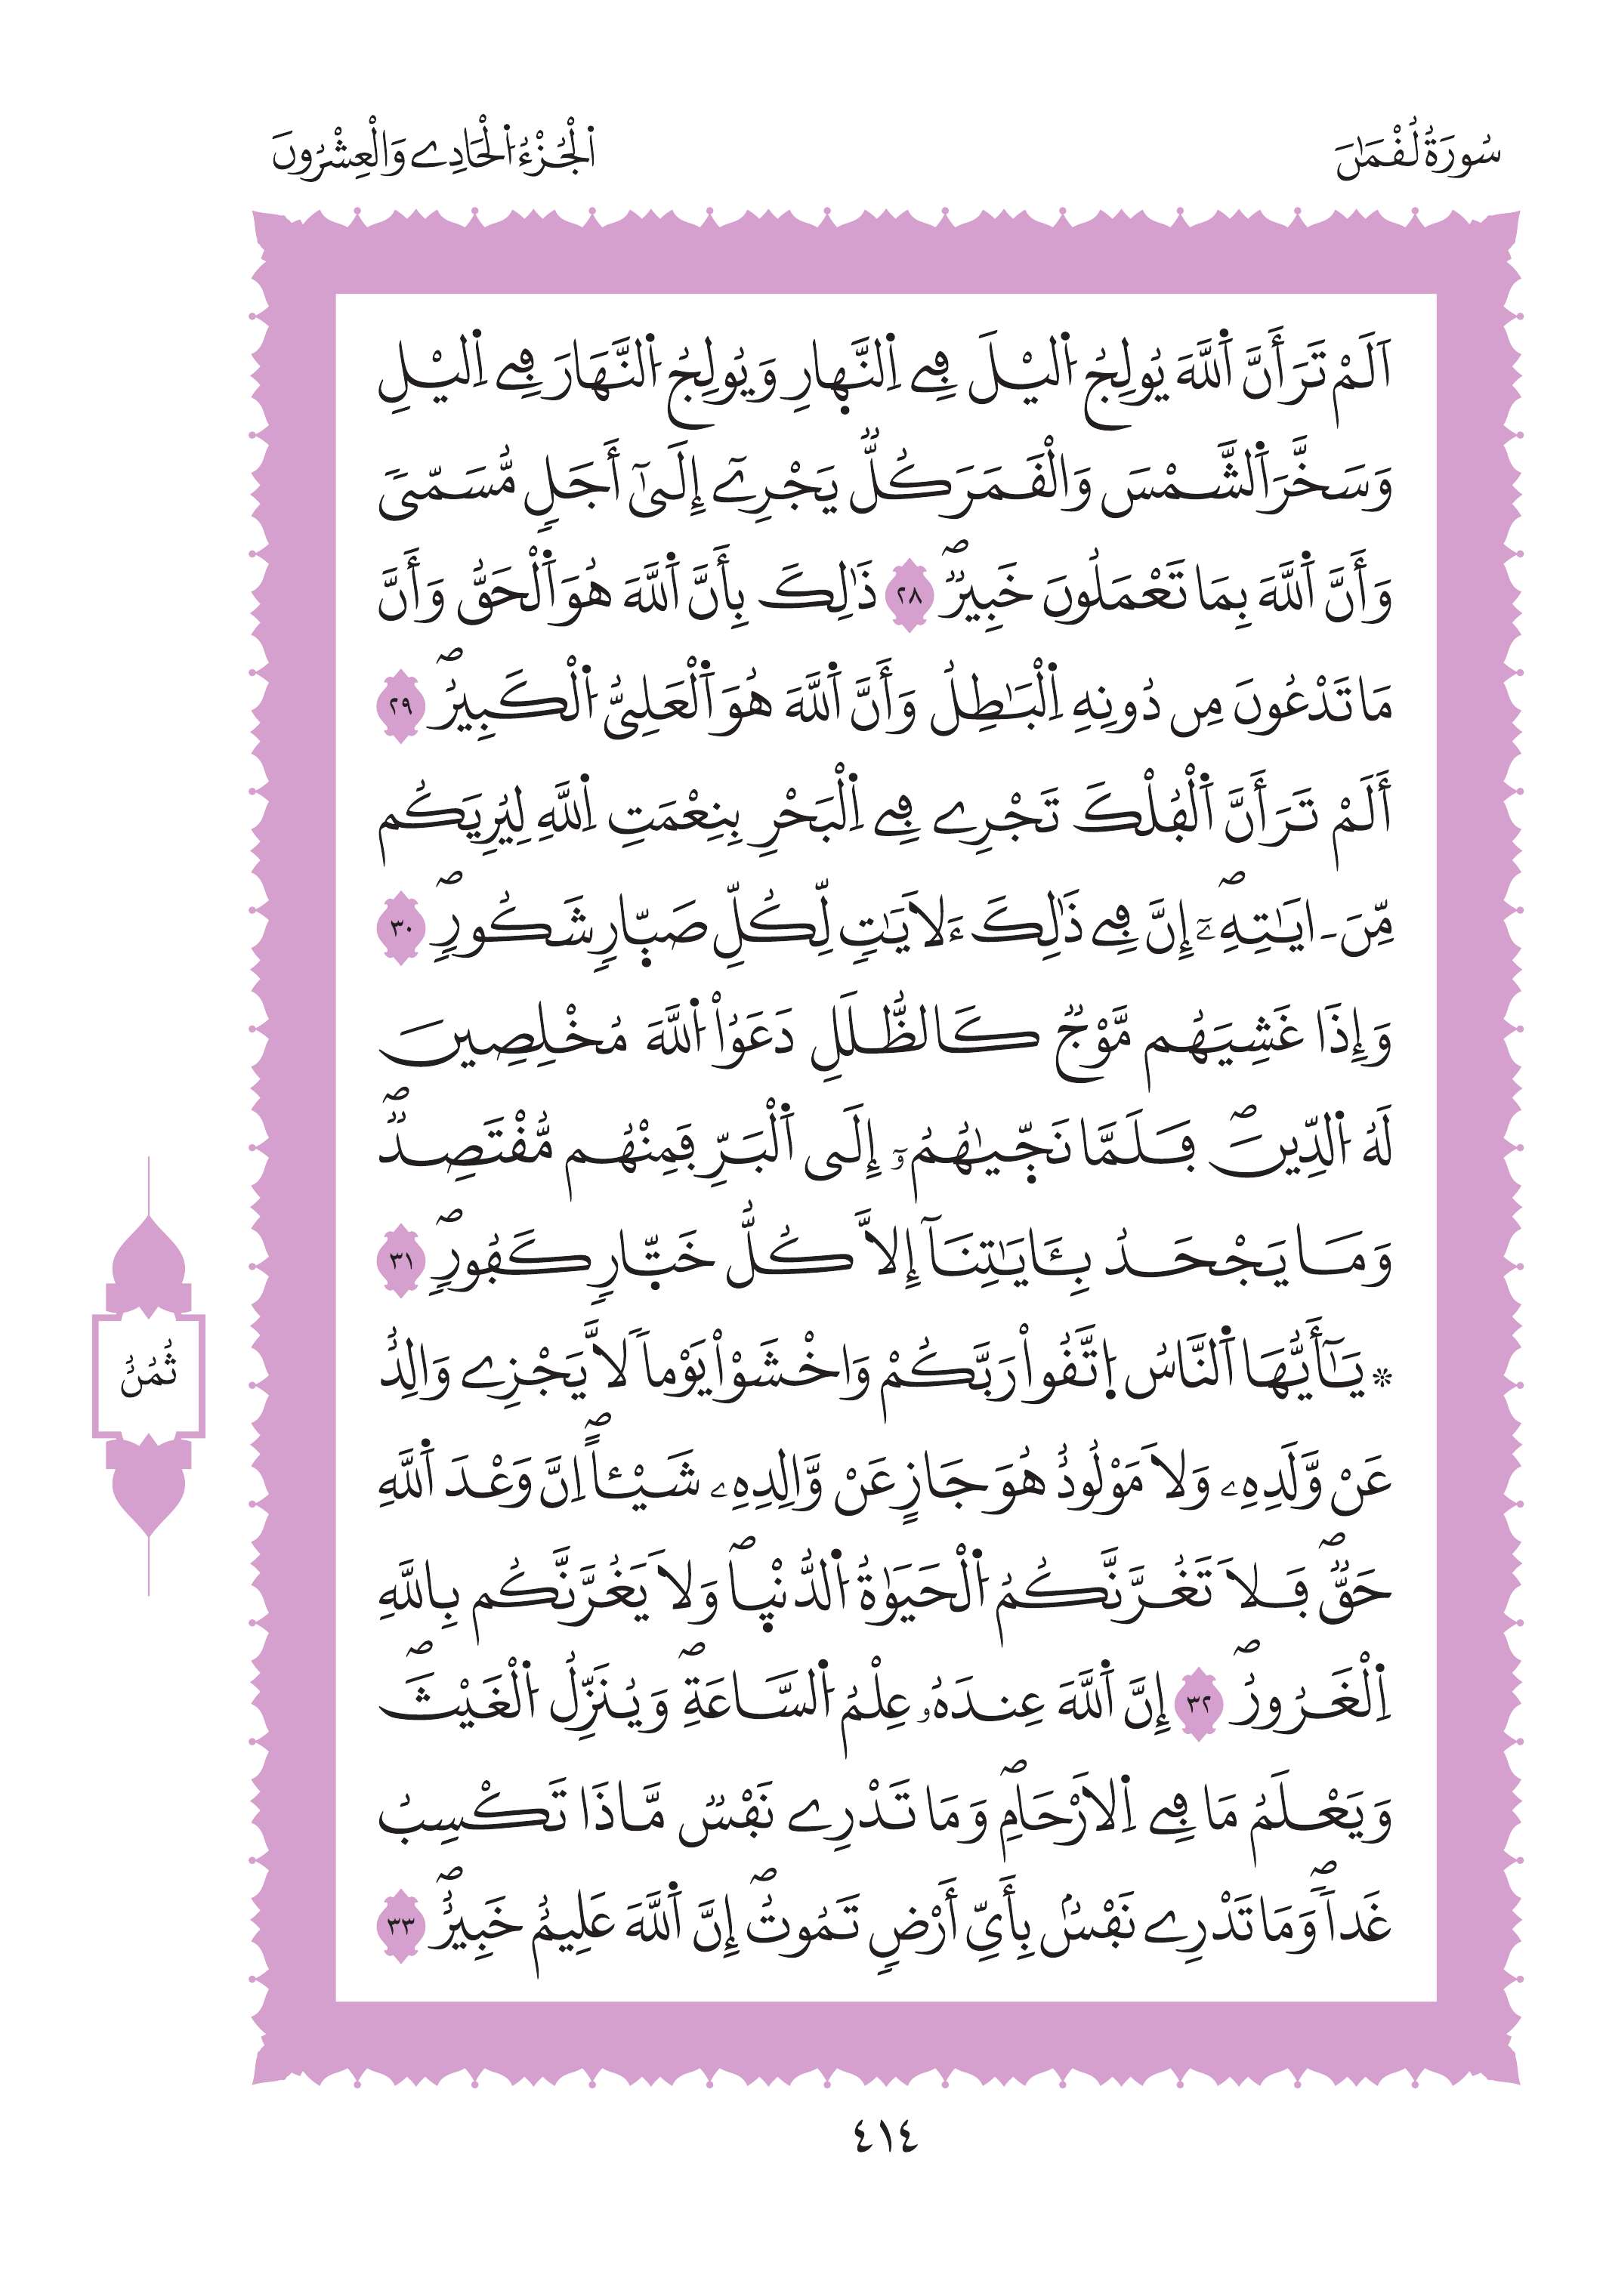 سُورَةُ لُقْمَٰنَ
اَ۬لْجُزْءُ اُ۬لْحَادِے وَالْعِشْرُونَ
اَلَمْ تَرَ أَنَّ اَ۬للَّهَ يُولِجُ اُ۬ليْلَ فِے اِ۬لنَّه۪ارِ وَيُولِجُ اُ۬لنَّهَارَ فِے اِ۬ليْلِ
وَسَخَّرَ اَ۬لشَّمْسَ وَالْقَمَرَ كُلّٞ يَجْرِےٓ إِلَىٰٓ أَجَلٖ مُّسَمّىٗ
وَأَنَّ اَ۬للَّهَ بِمَا تَعْمَلُونَ خَبِيرٞۖ ٢٨ ذَٰلِكَ بِأَنَّ اَ۬للَّهَ هُوَ اَ۬لْحَقُّ وَأَنَّ
مَا تَدْعُونَ مِن دُونِهِ اِ۬لْبَٰطِلُ وَأَنَّ اَ۬للَّهَ هُوَ اَ۬لْعَلِيُّ اُ۬لْكَبِيرُۖ ٢٩
أَلَمْ تَرَ أَنَّ اَ۬لْفُلْكَ تَجْرِے فِے اِ۬لْبَحْرِ بِنِعْمَتِ اِ۬للَّهِ لِيُرِيَكُم
مِّنَ ـ ايَٰتِهِۦٓۖ إِنَّ فِے ذَٰلِكَ ءَلَايَٰتٖ لِّكُلِّ صَبّ۪ارٖ شَكُورٖۖ ٣٠
وَإِذَا غَشِيَهُم مَّوْجٞ كَالظُّلَلِ دَعَوُاْ اُ۬للَّهَ مُخْلِصِينَ
لَهُ اُ۬لدِّينَۖ فَلَمَّا نَجّ۪يٰهُمُۥٓ إِلَى اَ۬لْبَرِّ فَمِنْهُم مُّقْتَصِدٞۖ
وَمَا يَجْحَدُ بِـَٔايَٰتِنَآ إِلَّا كُلُّ خَتّ۪ارٖ كَفُورٖۖ ٣١
۞ يَٰٓأَيُّهَا اَ۬لنَّاسُ اُ۪تَّقُواْ رَبَّكُمْ وَاخْشَوْاْ يَوْماٗ لَّا يَجْزِے وَالِدٌ
عَنْ وَّلَدِهِۦ وَلَا مَوْلُودٌ هُوَ جَازٍ عَنْ وَّالِدِهِۦ شَيْـٔاًۖ اِنَّ وَعْدَ اَ۬للَّهِ
حَقّٞۖ فَلَا تَغُرَّنَّكُمُ اُ۬لْحَيَوٰةُ اُ۬لدُّنْي۪اۖ وَلَا يَغُرَّنَّكُم بِاللَّهِ
اِ۬لْغَرُورُۖ ٣٢ إِنَّ اَ۬للَّهَ عِندَهُۥ عِلْمُ اُ۬لسَّاعَةِۖ وَيُنَزِّلُ اُ۬لْغَيْثَۖ
وَيَعْلَمُ مَا فِے اِ۬لَارْحَامِۖ وَمَا تَدْرِے نَفْسٞ مَّاذَا تَكْسِبُ
غَداٗۖ وَمَا تَدْرِے نَفْسُۢ بِأَيِّ أَرْضٖ تَمُوتُۖ إِنَّ اَ۬للَّهَ عَلِيمٌ خَبِيرٌۖ ٣٣
ثُمُنُ
٤١٤